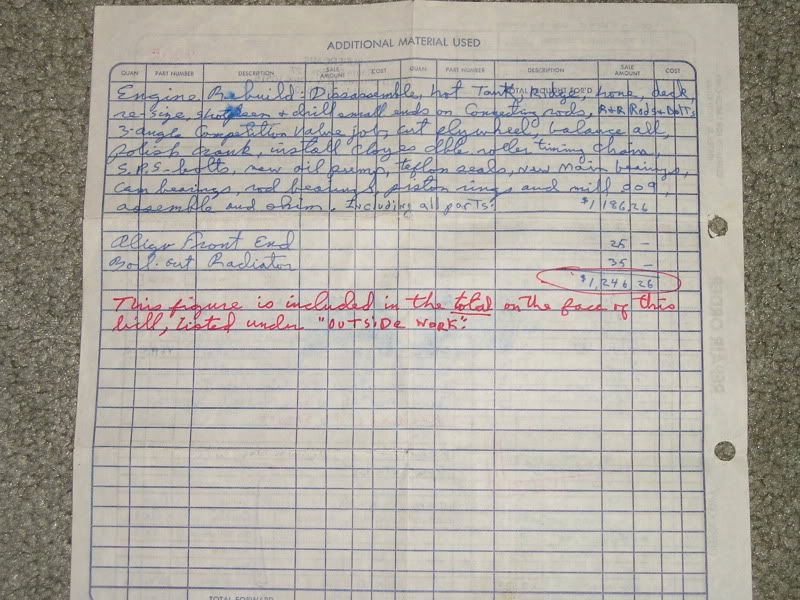 ADDITIONAL MATERIAL USED
QUAN. PART NUMBER DESCRIPTION SALE AMOUNT COST QUAN. PART NUMBER DESCRIPTION SALE AMOUNT COST
Engine Rebuild: Disassemble, hot Tank, Ridge, hone, deck
re-size, shotpeen & drill small ends on Connecting rods, R&R Rods & Bolts,
3-angle Competition Valve job, cut flywheel, balance all,
polish crank, install Cloyes dble roller timing chain,
S.P.S-bolts, new oil pump, teflon seals, new main bearings,
Cam bearings, rod bearings, piston rings and mill .009,
assemble and shim. Including all parts: $1,186.26
Align Front End 25 —
Boil-out Radiator 35 —
$1,246 26
This figure is included in the total on the face of this
bill, listed under "OUTSIDE WORK".
TOTAL FORWARD